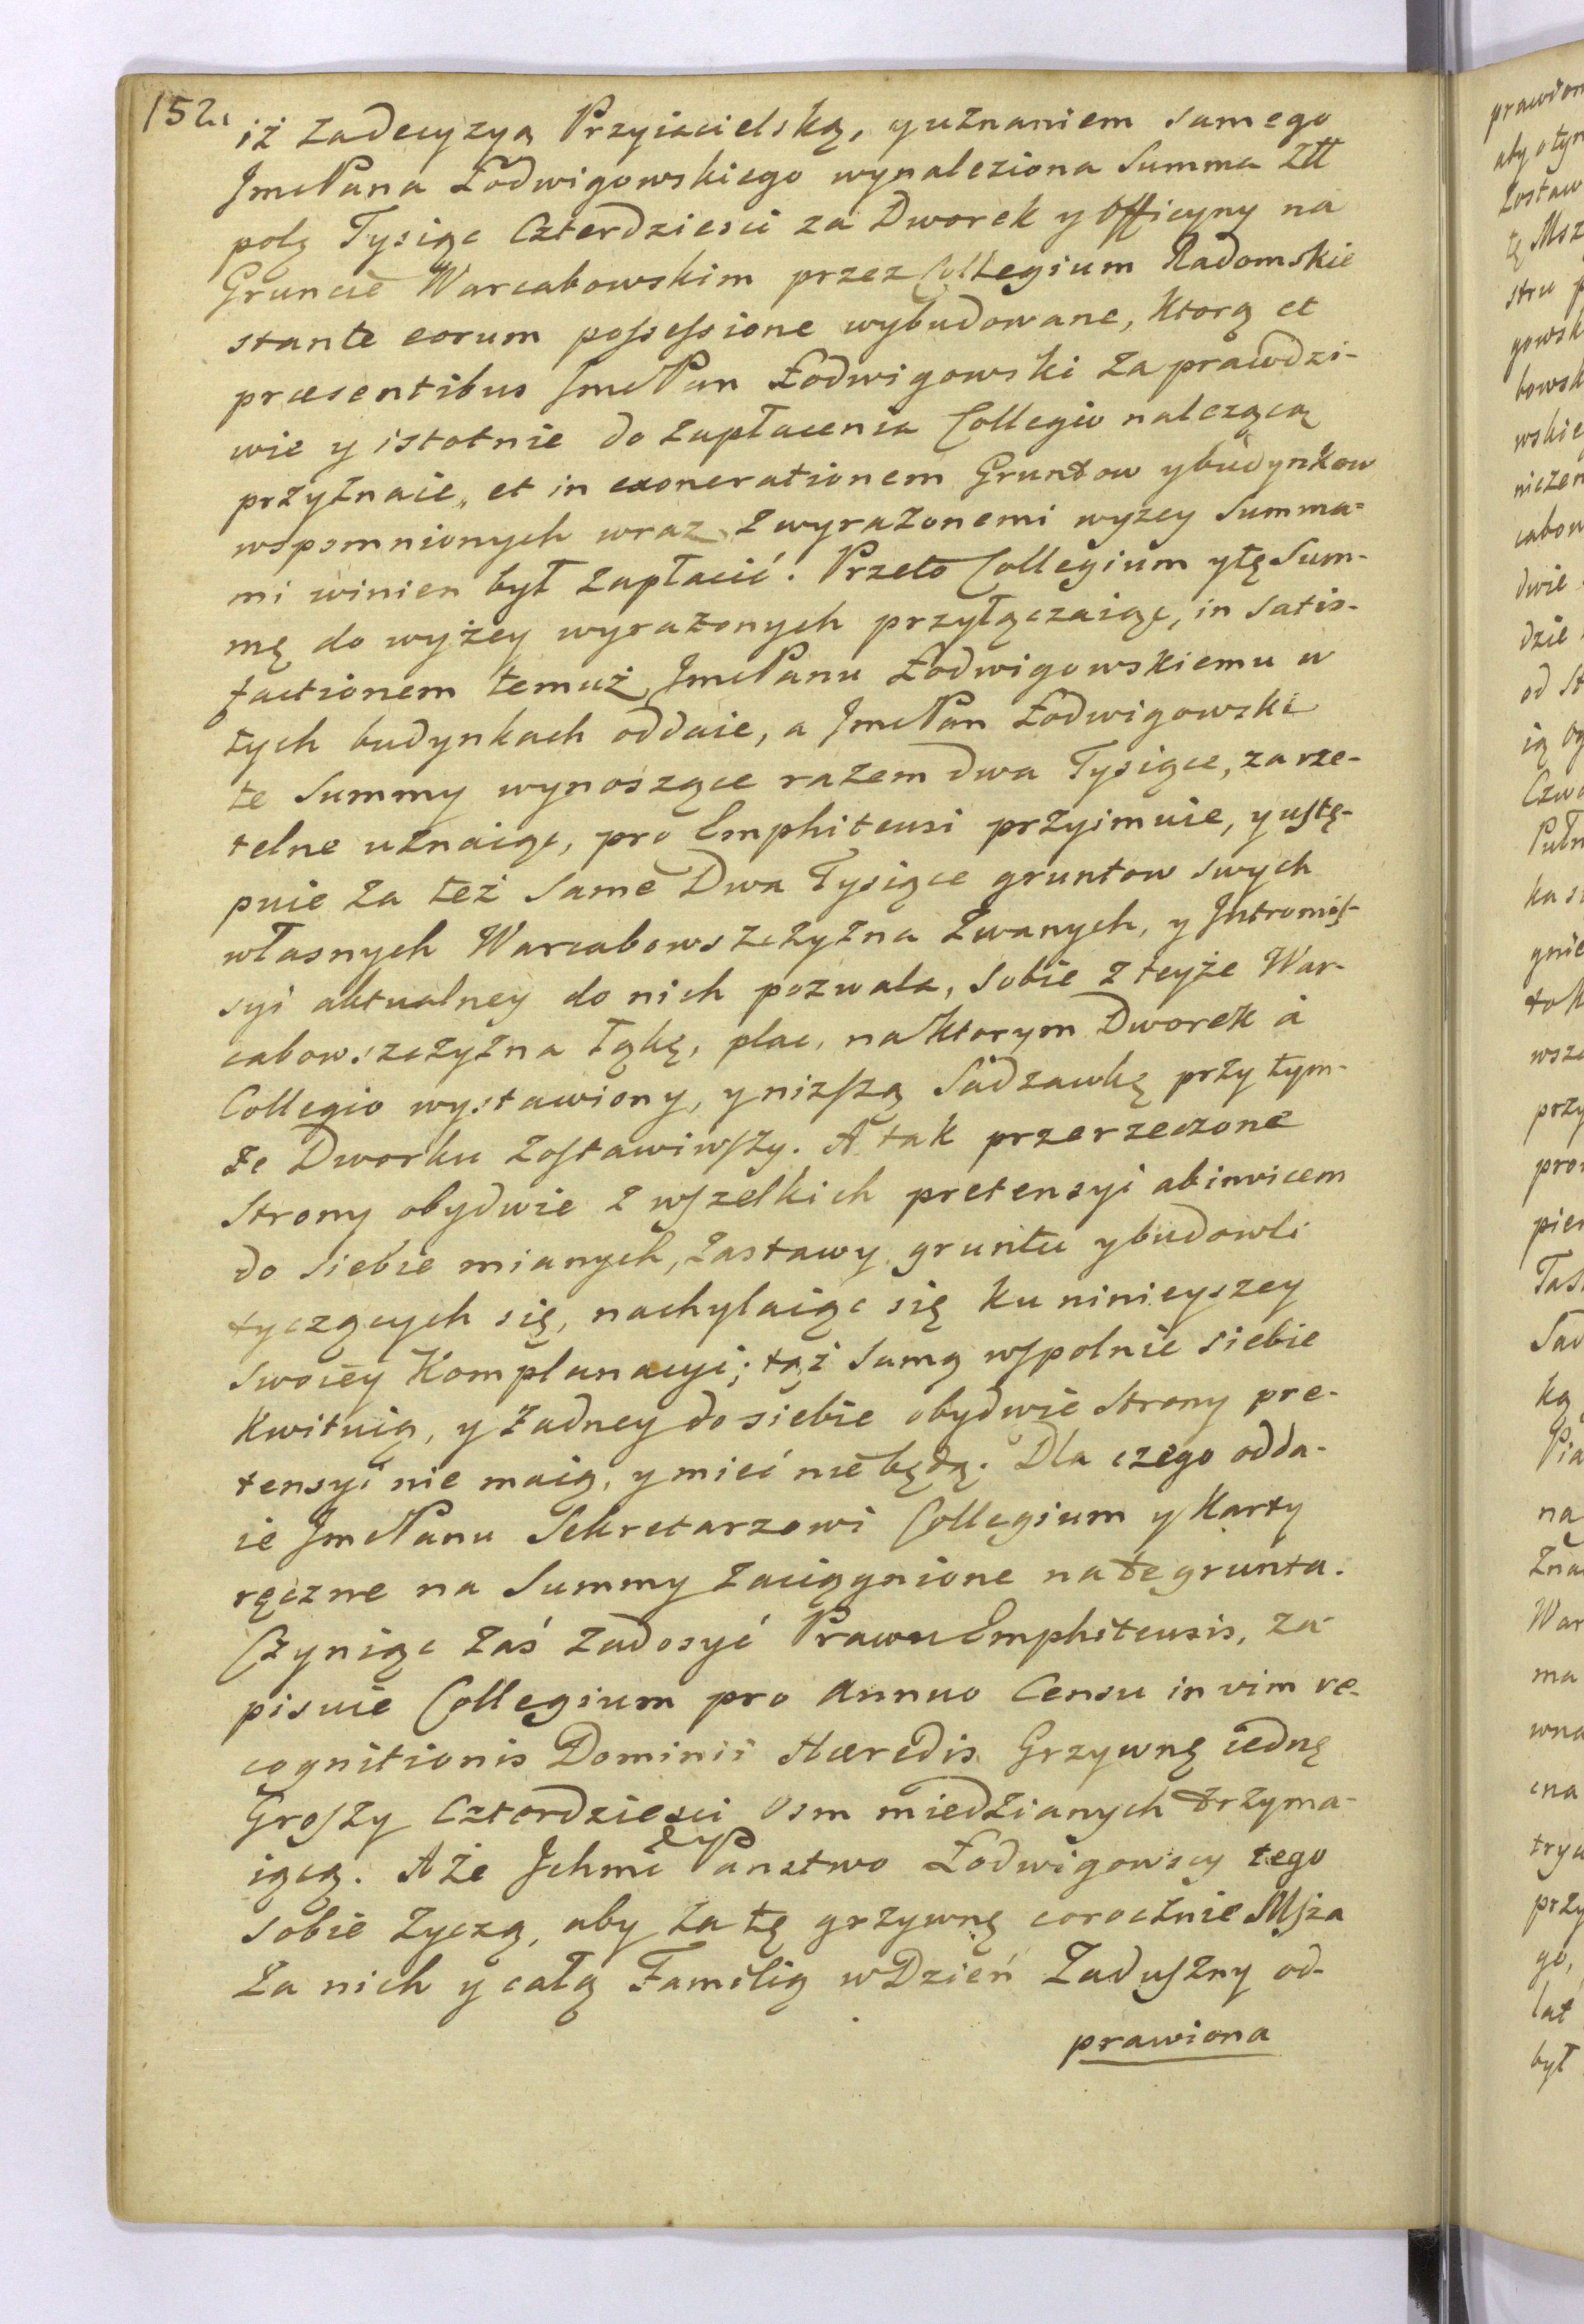 152.
iż za decyzyą Przyiacielską, y uznaniem samego
JmcPana Łodwigowskiego wynaleziona Summa Złł
polg Tysiąc Czterdziesci za Dworek y Officyny na
Gruncie Warcabowskim przez Collegium Radomskie
stante eorum possessione wybudowane, ktorą et
præsentibus JmcPan Łodwigowski za prawdzi-
wie y istotnie do zapłacenia Collegio nalezącą
przyznaie, et in exonerationem Gruntow y budynkow
wspomnionych wraz z wyrazonemi wyzey Summa-
mi winien był zapłacić. Przeto Collegium y tę Sum-
mę do wyżey wyrażonych przyłączaiąc, in Satis-
factionem temuż JmcPanu Łodwigowskiemu w
tych budynkach oddaie, a JmcPan Łodwigowski
te Summy wynoszące razem dwa Tysiące, za rze-
telne uznaiąc, pro Emphiteusi przyimuie, y ustę-
puie za też same Dwa Tysiące gruntow swych
własnych Warcabowszczyzna zwanych, y Intromis-
syi aktualney do nich pozwala, sobie z teyże War-
cabowszczyzna łąkę, plac, na ktorym Dworek à
Collegio wystawiony, y nizszą Sadzawkę przy tym-
że Dworku zostawiwszy. A tak przerzeczone
Strony obydwie z wszelkich pretensyi abinvicem
do siebie mianych, zastawy gruntu y budowli
tyczących się, nachylaiąc się ku ninieyszey
swoiey Komplanacyi; tąż samą wspolnie siebie
Kwituią, y żadney do siebie obydwie Strony pre-
tensyi nie maią, y mieć nie będą. Dla czego odda-
ie JmcPanu Sekretarzowi Collegium y Karty
ręczne na Summy zaciągnione na te grunta.
Czyniąc zaś zadosyć Prawu Emphiteusis, za-
pisuie Collegium pro annuo Censu in vim re-
cognitionis Dominii Hæredis Grzywnę iednę
Groszy Czterdziesci Osm miedzianych trzyma-
iącą. A że Jchmć Panstwo Łodwigowscy tego
sobie zyczą, aby za tę grzywnę corocznie Msza
za nich y całą Familią w Dzień Zaduszny od-
prawiona